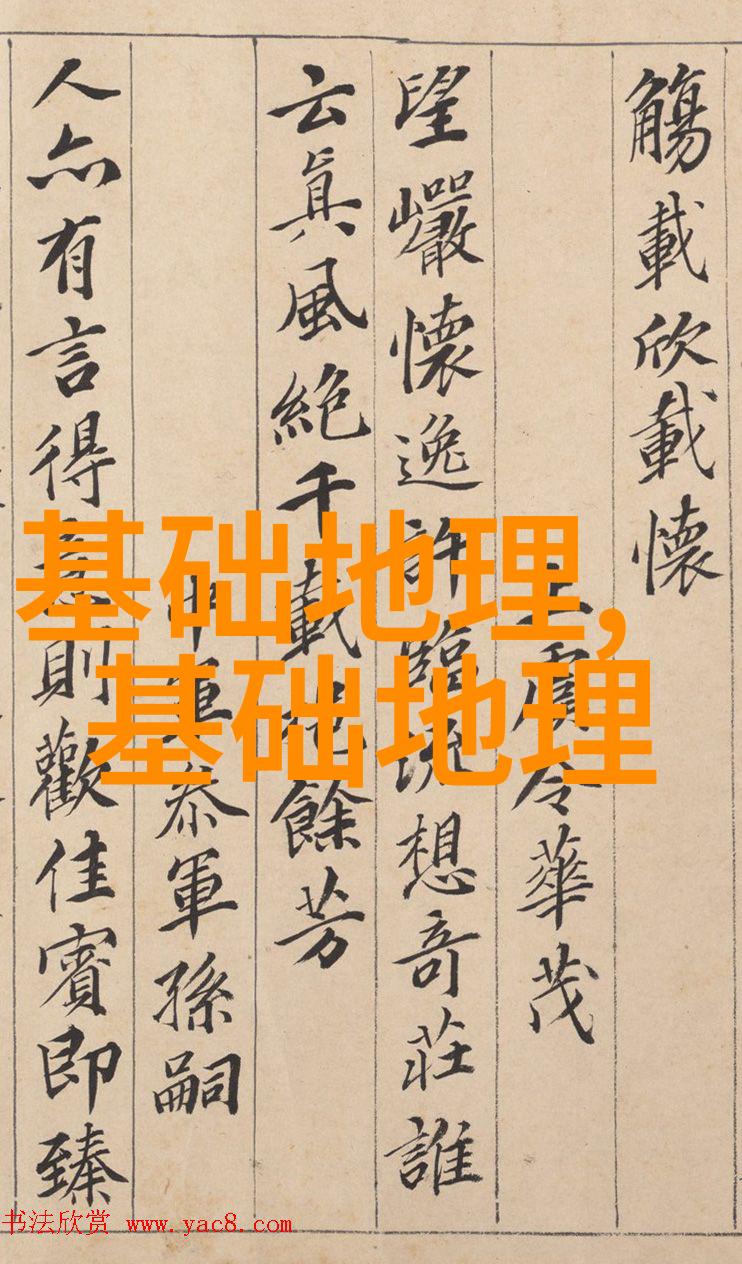 觴載欣載懷
上虞令華茂
望巖懷逸許臨流想奇莊誰
云眞風絶千載挹餘芳
中軍叅軍孫嗣
人亦有言得意則歡佳賓即臻
基础地理,
基础地理
书法欣赏 www.yac8.com